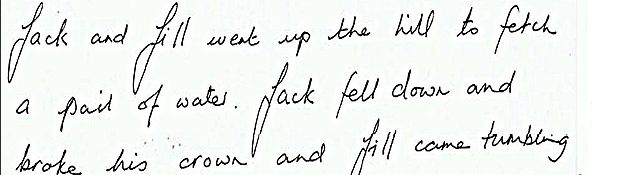 Jack and Jill went up the hill to fetch
a pail of water. Jack fell down and
broke his crown and Jill came tumbling